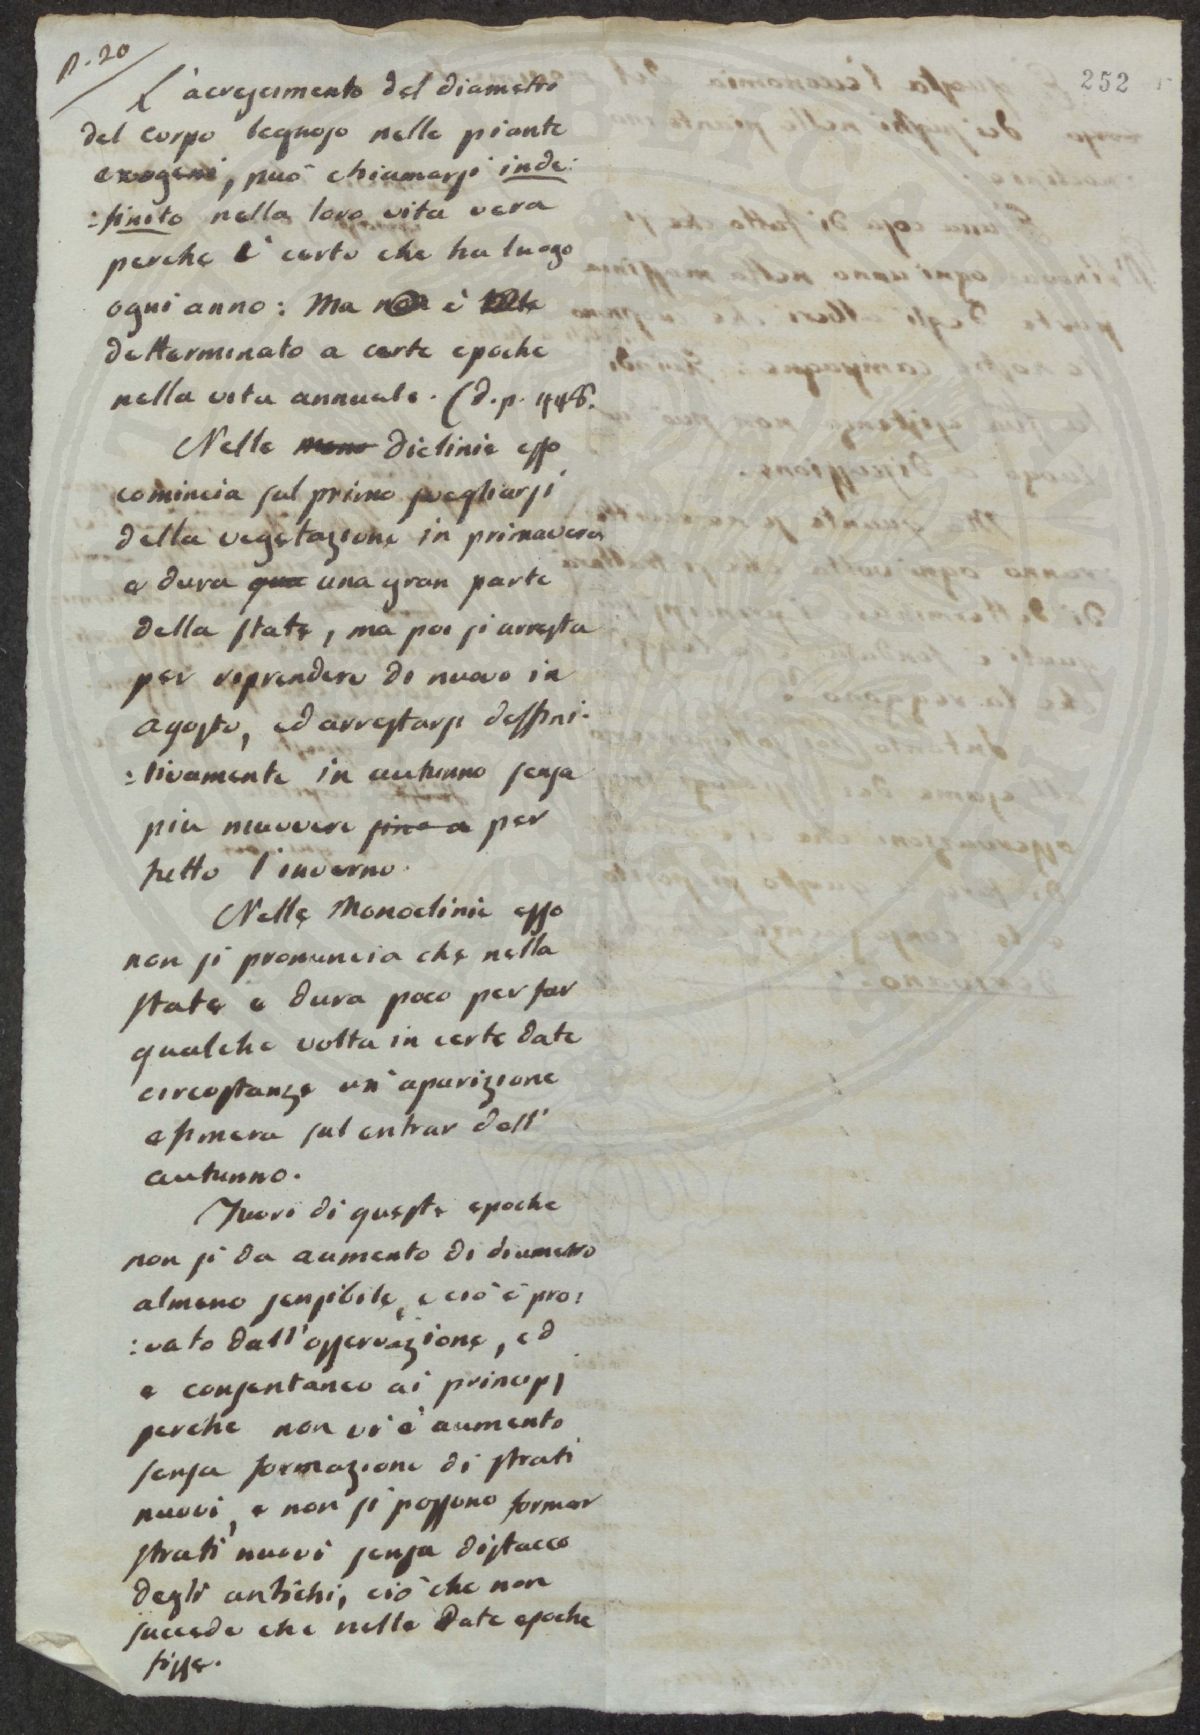 n. 20
252
L'acrescimento del diametro
del corpo legnoso nelle piante
exogeni, può chiamarsi inde:
:finito nella loro vita vera
perche è certo che ha luogo
ogni anno: Ma è
detterminato a certe epoche
nella vita annuale. (d. p. 448.
Nelle mono diclinie esso
comincia sul primo svegliarsi
della vegetazione in primavera
e dura qua una gran parte
della state, ma poi si arresta
per riprendere di nuovo in
agosto, ed arrestarsi deffini:
:tivamente in autunno senza
piu muovere sino a per
tutto l'inverno.
Nelle Monoclinie esso
non si pronuncia che nella
state e dura poco per far
qualche volta in certe date
circostanze un' aparizione
efimera sul entrar dell'
autunno.
Fuori di queste epoche
non si da aumento di diametro
almeno sensibile, e ciò è pro:
:vato dall'osservazione, ed
e consentaneo ai principj
perche non vi è aumento
senza formazione di strati
nuovi, e non si possono formar
strati nuovi senza distacco
degli antichi, ciò che non
succede che nelle date epoche
fisse.